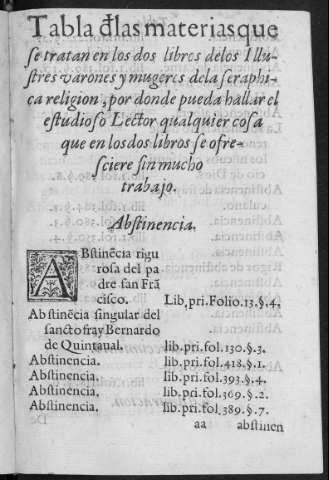 Tabla đlas materiasque
se tratan en los dos libros delos Illu-
stres varones y mugeres dela seraphi-
ca religion, por donde pueda hallar el
estudioso Lector qualquier cosa
que en los dos libros se ofre-
sciere sin mucho
trabajo.
Abstinencia.
ABstinẽcia rigu
rosa del pa
dre san Frã
cisco. Lib, pri. Folio. 13. §. 4.
Abstinẽcia singular del
sancto fray Bernardo
de Quintaual. lib. pri. fol. 130. §. 3.
Abstinencia. lib. pri. fol. 418. §. 1.
Abstinencia. lib. pri. fol. 393. §. 4.
Abstinencia. lib. pri. fol. 369. §. 2.
Abstinencia. lib. pri. fol. 389. §. 7.
aa abstinen